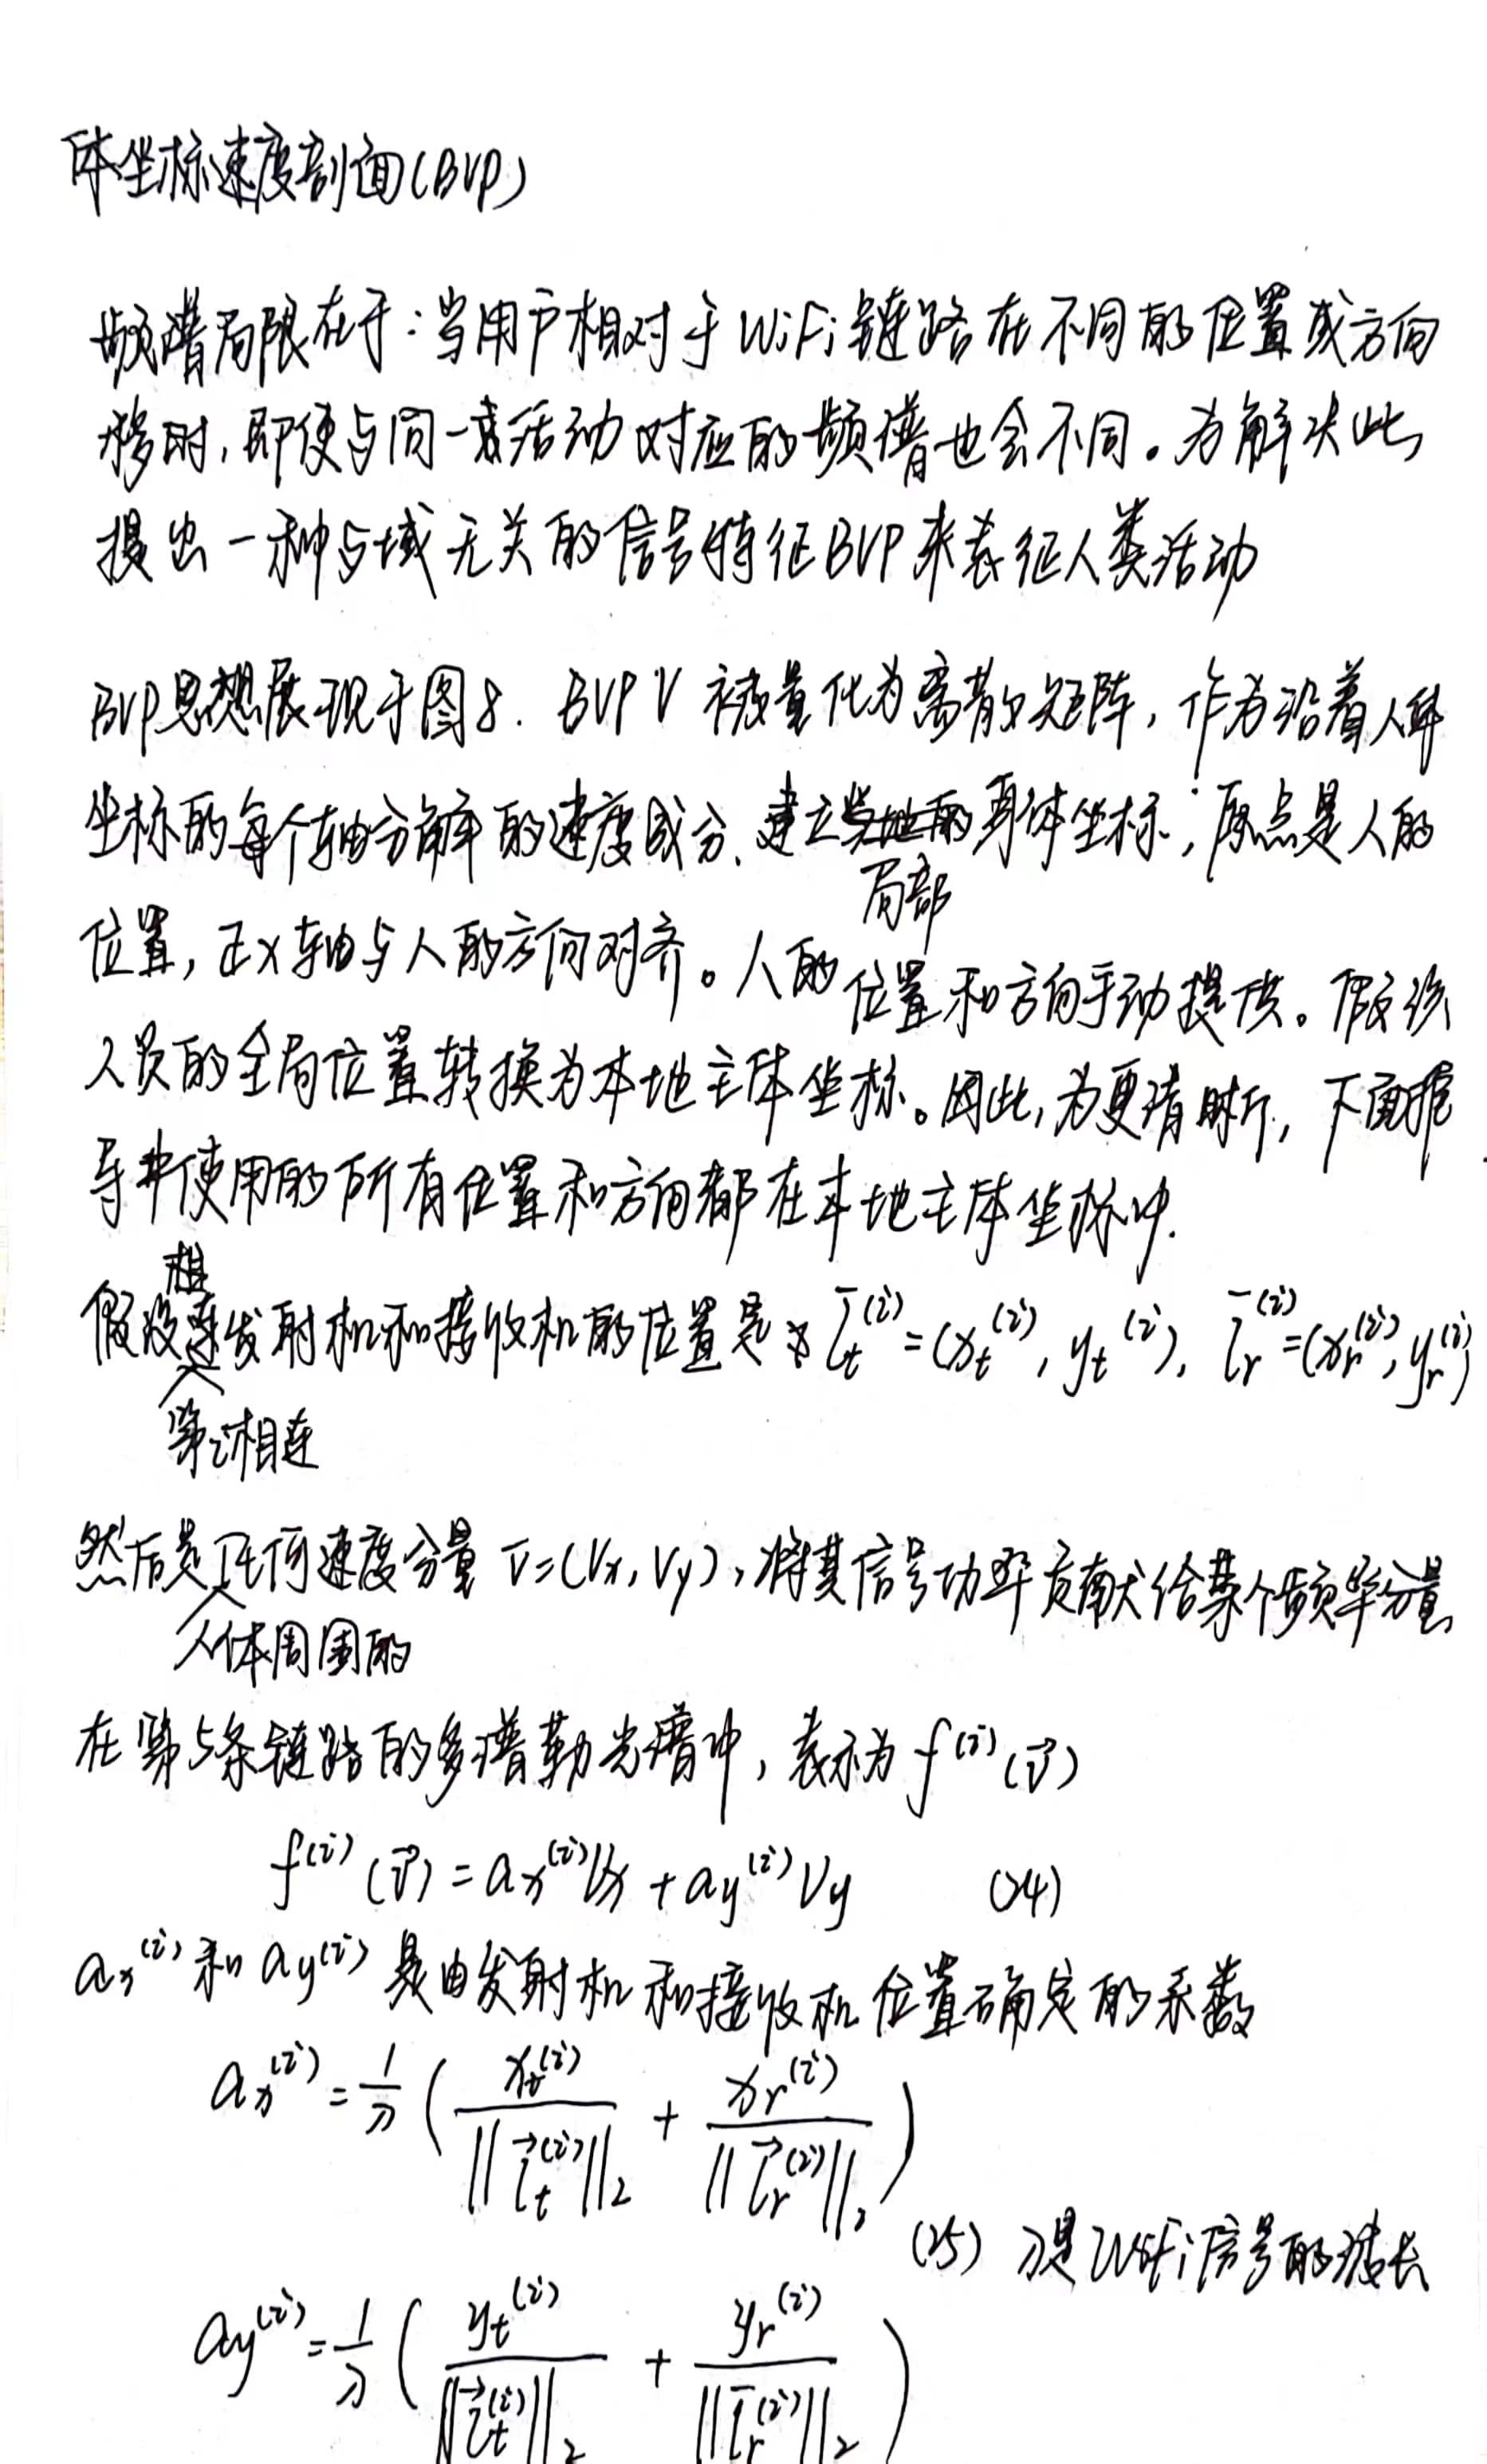 体坐标速度剖面(BVP)
频谱局限在于:当用户相对于WiFi链路在不同的位置或方向
移时,即使与同一活动对应的频谱也会不同。为解决此
提出一种与域无关的信号特征BVP来表征人类活动
BVP思想展现于图8. BVP V 被量化为离散矩阵,作为沿着人体
坐标的每个轴分解的速度成分、建立的身体坐标;原点是人的
局部
位置,正x轴与人的方向对齐。人的位置和方向手动提供。假设
人员的全局位置转换为本地主体坐标。因此,为更清晰,下面推
导中使用的所有位置和方向都在本地主体坐标中.
假设发射机和接收机的位置是 $\vec{l}_t^{(i)}=(x_t^{(i)}, y_t^{(i)}), \vec{l}_r^{(i)}=(x_r^{(i)}, y_r^{(i)})$
第i相连
然后任何速度分量 $\vec{v}=(V_x, V_y)$,将其信号功率贡献给某个频率分量
人体周围的
在第5条链路的多谱勒光谱中,表示为 $f^{(i)}(\vec{v})$
$f^{(i)}(\vec{v}) = a_x^{(i)}V_x + a_y^{(i)}V_y$ (24)
$a_x^{(i)}$ 和 $a_y^{(i)}$ 是由发射机和接收机位置确定的系数
$a_x^{(i)} = \frac{1}{\lambda}\left(\frac{x_t^{(i)}}{\|\vec{l}_t^{(i)}\|_2} + \frac{x_r^{(i)}}{\|\vec{l}_r^{(i)}\|_2}\right)$
(25) λ是WiFi信号的波长
$a_y^{(i)} = \frac{1}{\lambda}\left(\frac{y_t^{(i)}}{\|\vec{l}_t^{(i)}\|_2} + \frac{y_r^{(i)}}{\|\vec{l}_r^{(i)}\|_2}\right)$